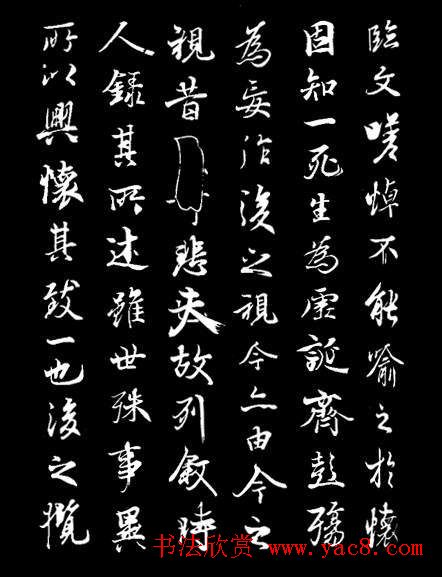 臨文嗟悼不能喻之於懷
固知一死生為虛誕齊彭殤
為妄作後之視今亦由今之
視昔悲夫故列敘時
人錄其所述雖世殊事異
所以興懷其致一也後之攬
书法欣赏 www.yac8.com